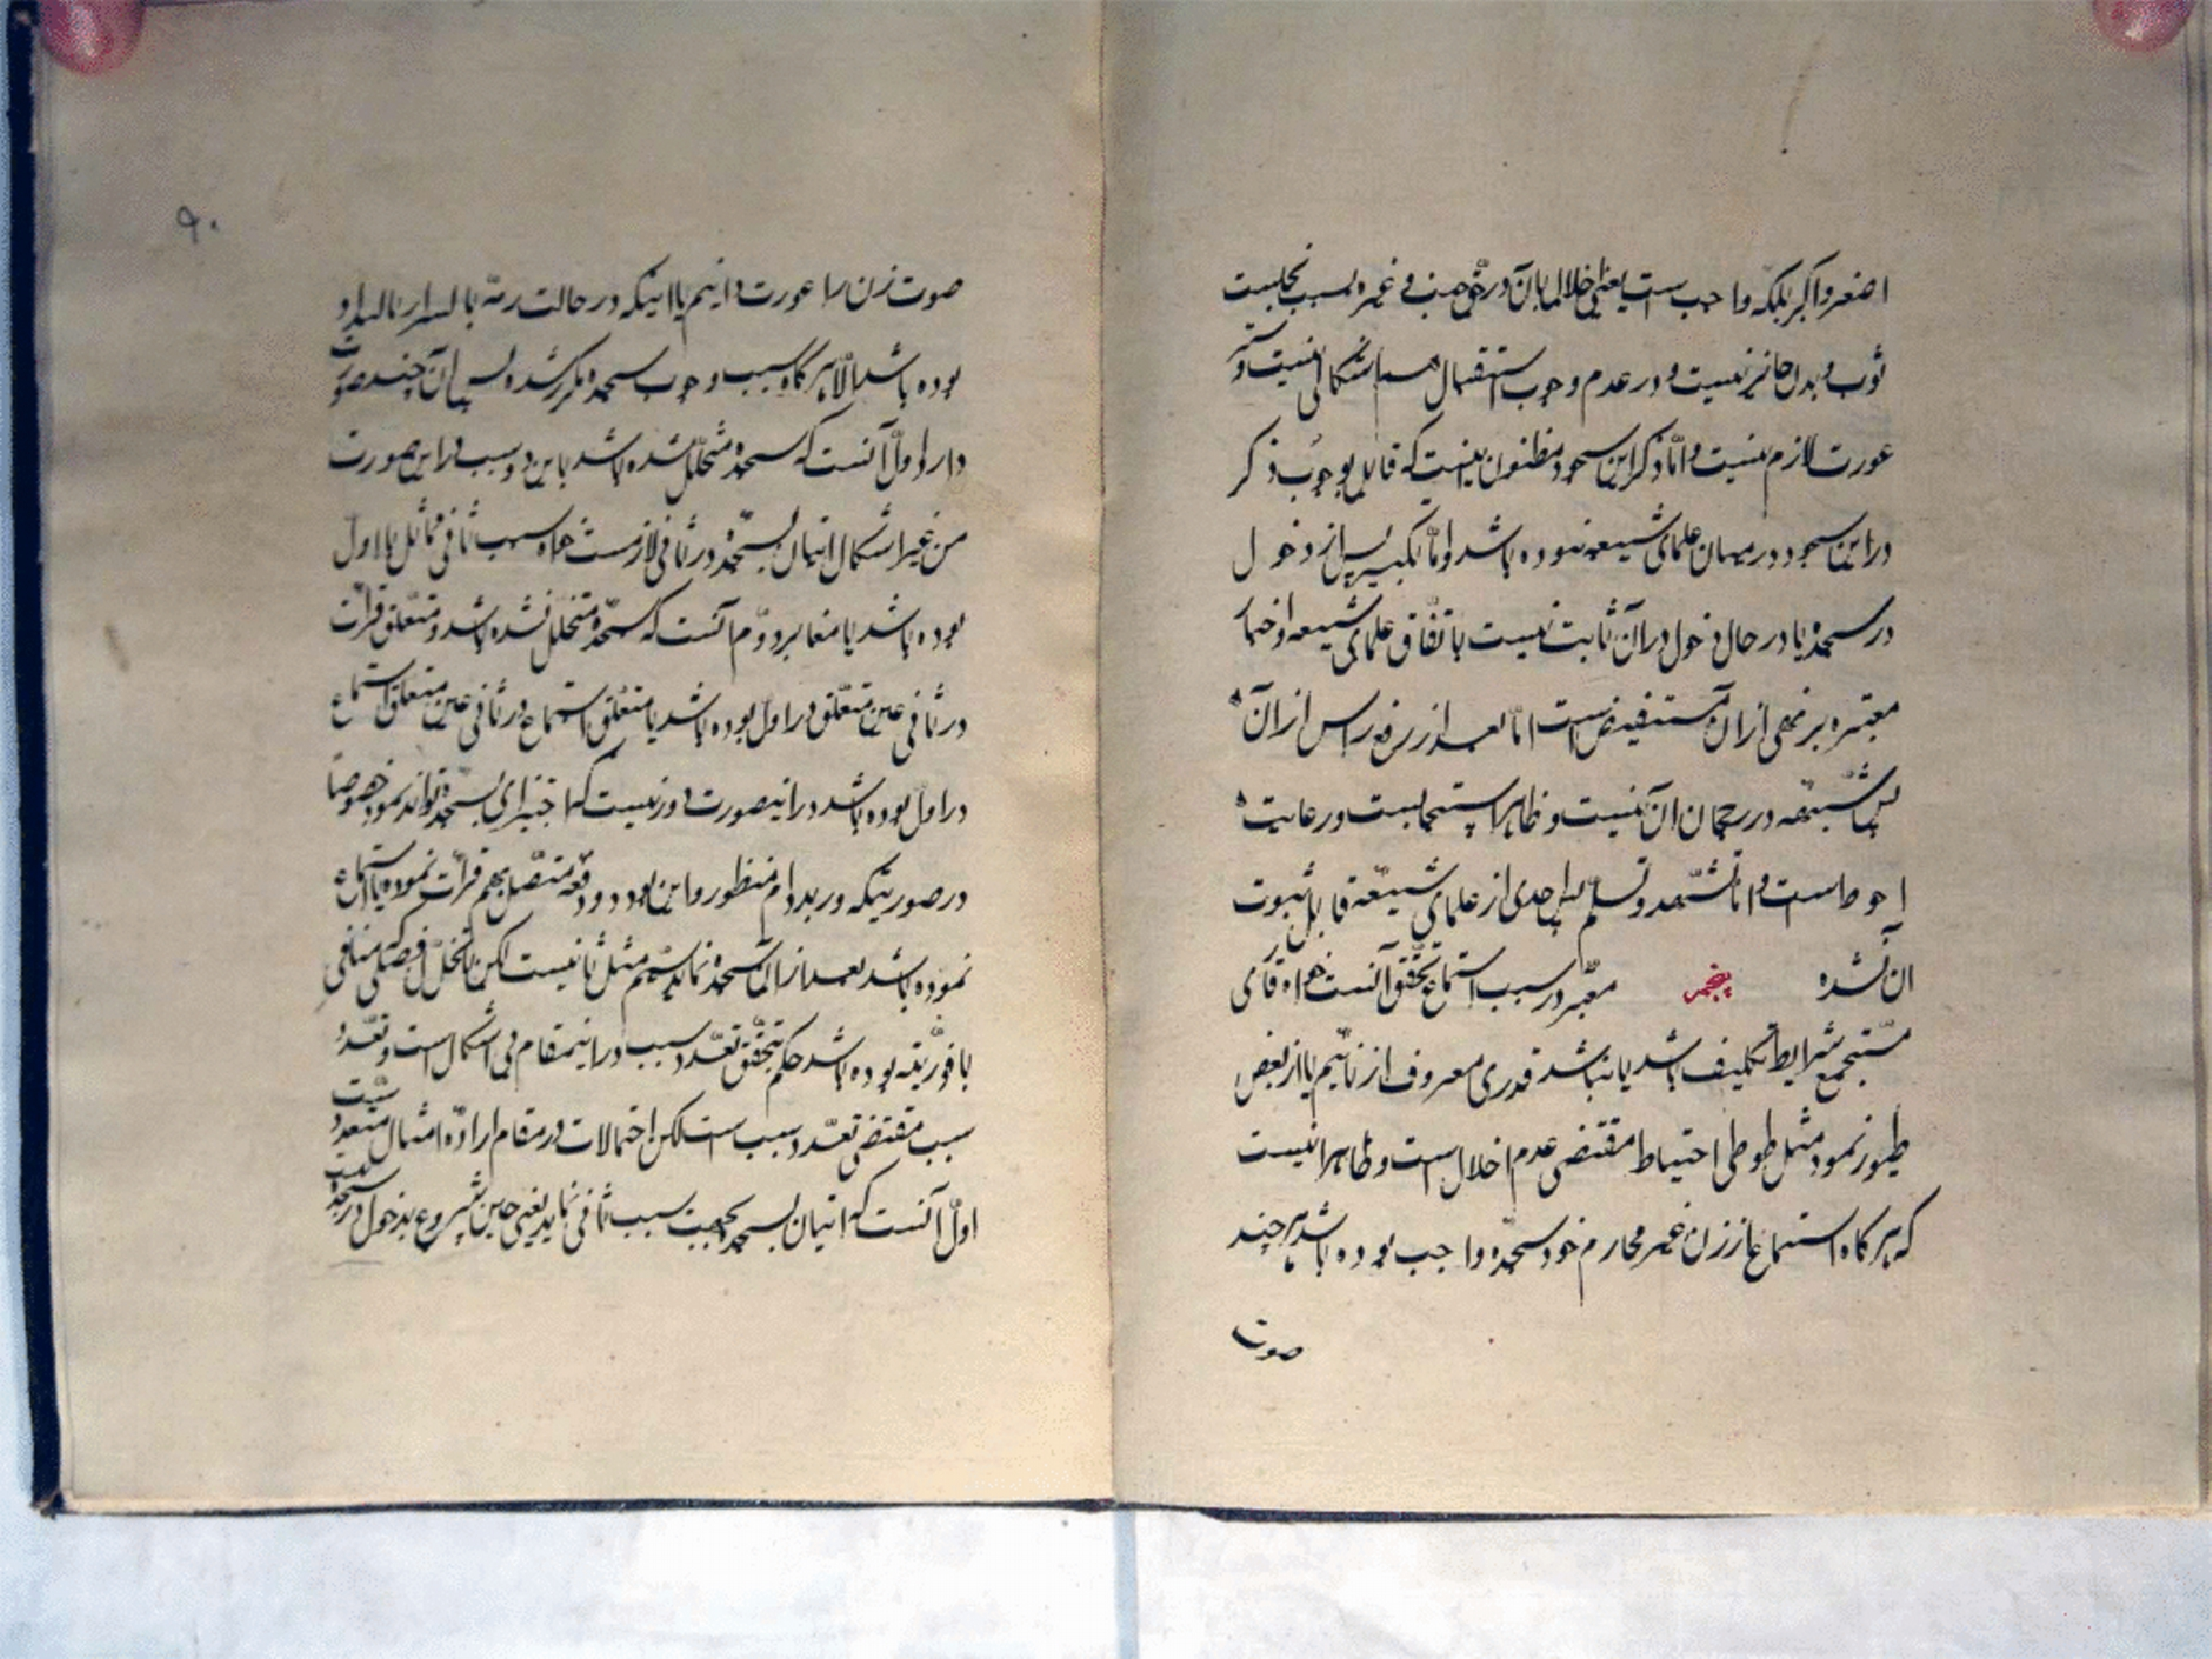 اصغر و اکبر بلکه واجب است یعنی اخلال بآن در حق جنب و غیره بسبب نجاست
ثوب و بدن جائز نیست و در عدم وجوب استقبال هم اشکالی نیست و ستر
عورت لازم نیست و امّا ذکر این سجود مظنون اینست که قایل بوجوب ذکر
در این سجود در میان علمای شیعه نبوده باشد و امّا تکبیر پس از دخول
در سجده یا در حال دخول در آن ثابت نیست باتفاق علمای شیعه و اخبار
معتبره بر نهی از ان مستفیض است امّا بعد از رفع راس از آن
پس شبهه در رجحان ان نیست و ظاهرا استحبابست و رعایت
احوط است و امّا تشهد و تسلیم پس احدی از علمای شیعه قایل بثبوت
آن نشده پنجم معتبر در سبب استماع تحقق آنست خواه قاری
مستجمع شرایط تکلیف باشد یا نباشد قدری معروف از نائیم یا از بعض
طیور نمود مثل طوطی احتیاط مقتضی عدم اخلال است و ظاهرا نیست
که هر کاه استماع از زن غیر محارم خود سجده واجب بوده باشد هر چند
صوت
۹۰
صوت زن را عورت دانیم یا اینکه در حالت
بوده باشد الّا هر کاه سبب وجوب سجده مکرر شده پس آن چند صورت
دارد اول آنست که سجده متخلّل شده باشد باین دو سبب در این صورت
من غیر اشکال اتیان بسجده در ثانی لازمست خواه سبب ثانی مماثل با اول
بوده باشد یا مغایر دوّم آنست که سجده متخلل نشده باشد و متعلق قرائت
در ثانی عین متعلّق در اول بوده باشد یا متعلق استماع در ثانی عین متعلق استماع
در اول بوده باشد در اینصورت دور نیست که اجتزای بسجده تواند نمود خصوصا
در صورتیکه ورد بدوام منظور و این بود دو دفعه متصل بهم قرائت نموده یا استماع
نموده باشد بعد از آن سجده نماید سیّم مثل ثانیست لکن با تخلل فصلی که منافی
با فوریّت بوده باشد حکم بتحقق تعدّد سبب در اینمقام بی اشکال است و تعدّد
سبب مقتضی تعدّد مسبب است لکن احتمالات در مقام اراده امتثال متعدد است
اول آنست که اتیان بسجده بجهت سبب ثانی نماید یعنی حین شروع بدخول در سجده